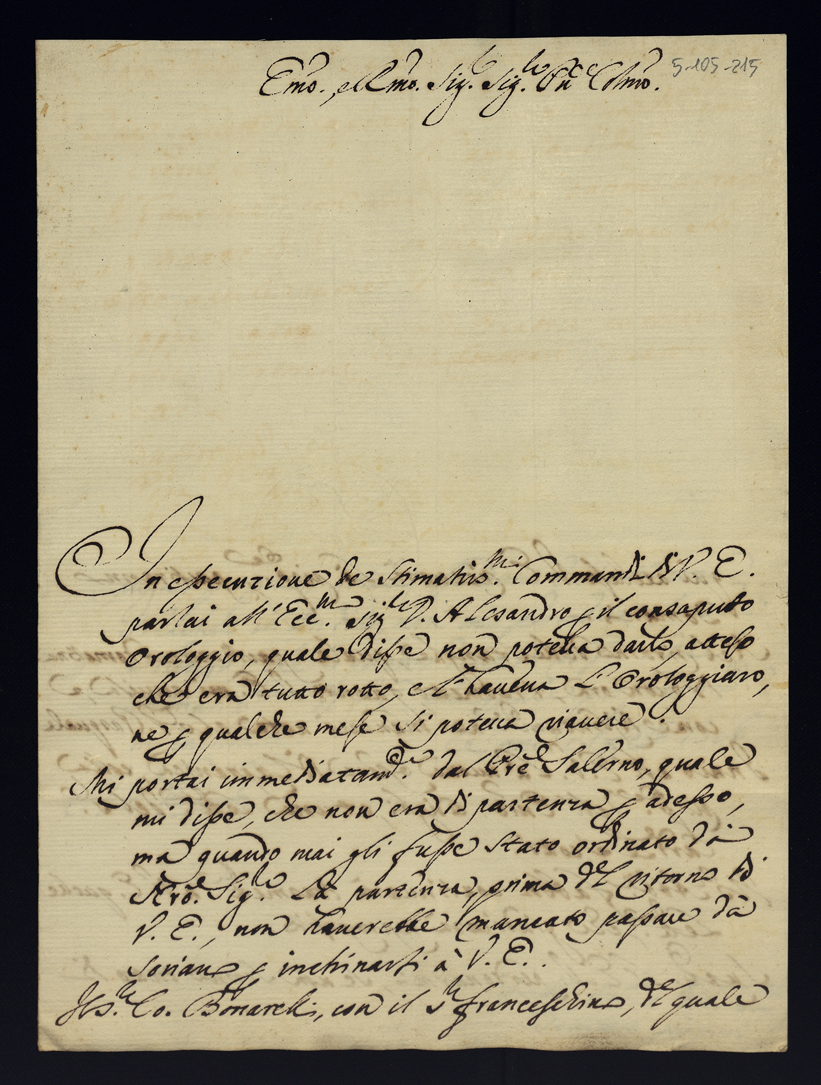 Emo., e Rmo. Sig.r Sig.re Pne Colmo. 5-105-215
In essecuzione de Stimatiss.mi Commandi di V. E.
parlai all' Ecc.mo Sig.re D. Alesandro p il consaputo
Orologgio, quale disse non poteva darlo, atteso
che era tutto rotto, e l' haveva l' Orologgiaro,
ne p qualche mese si poteva riavere.
Mi portai immediatam.te dal Pre Salerno, quale
mi disse, che non era di partenza p adesso,
ma quando mai gli fusse stato ordinato dà
Nro. Sig.re la partenza, prima del ritorno di
V. E., non haverebbe mancato passare dà
Soriano p inchinarsi à V. E.
Il S.r Co. Bonarelli, con il S.r Franceschino, del quale